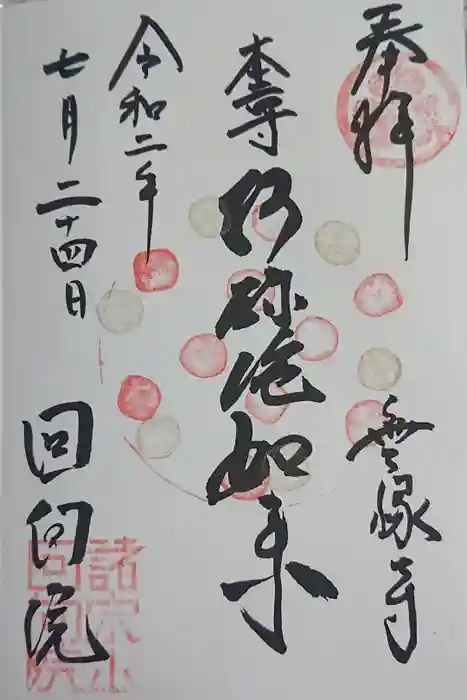 奉拝
無縁寺
本尊 阿弥陀如来
令和二年
七月二十四日
回向院
諸宗山回向院